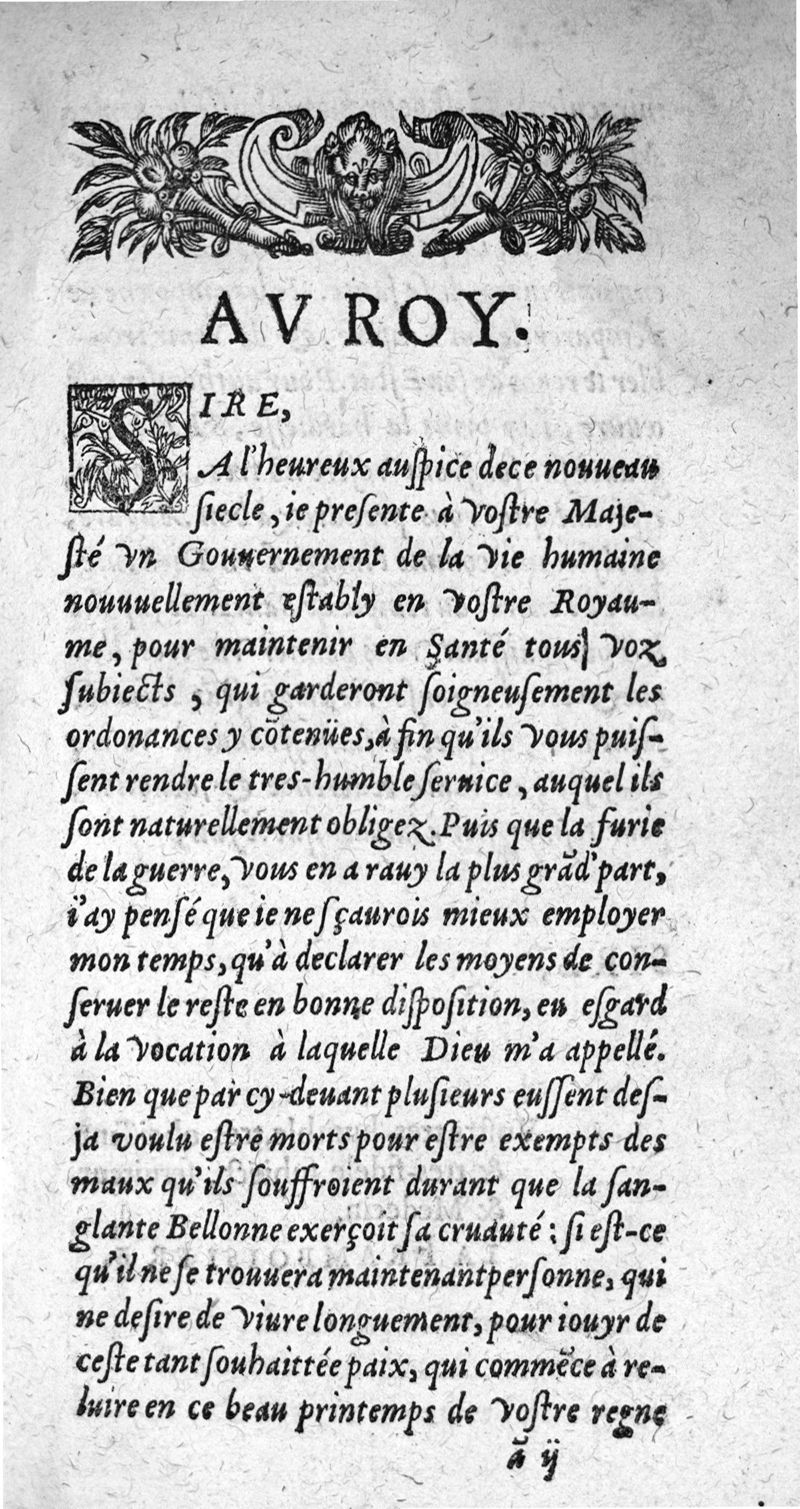 AV ROY.
SIRE,
A l'heureux auſpice de ce nouueau
ſiecle, ie preſente à voſtre Maje-
ſté vn Gouuernement de la vie humaine
nouuuellement eſtably en voſtre Royau-
me, pour maintenir en Santé tous voz
ſubiects, qui garderont ſoigneuſement les
ordonances y cõtenües, à fin qu'ils vous puiſ-
ſent rendre le tres-humble ſeruice, auquel ils
ſont naturellement obligez. Puis que la furie
de la guerre, vous en a rauy la plus grãd' part,
i'ay penſé que ie ne ſçaurois mieux employer
mon temps, qu'à declarer les moyens de con-
ſeruer le reſte en bonne diſpoſition, eu eſgard
à la vocation à laquelle Dieu m'a appellé.
Bien que par cy-deuant pluſieurs euſſent deſ-
ja voulu eſtre morts pour eſtre exempts des
maux qu'ils ſouffroient durant que la ſan-
glante Bellonne exerçoit ſa cruauté: ſi eſt-ce
qu'il ne ſe trouuera maintenant perſonne, qui
ne deſire de viure longuement, pour iouyr de
ceſte tant ſouhaittée paix, qui commẽce à re-
luire en ce beau printemps de voſtre regne
ã ij